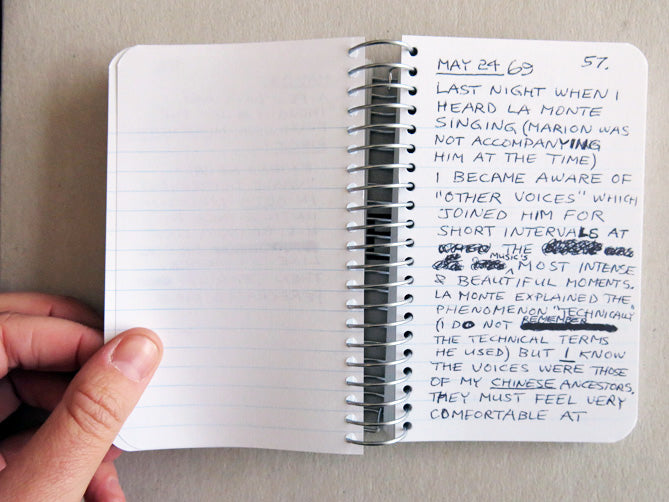 MAY 24 69 57.
LAST NIGHT WHEN I
HEARD LA MONTE
SINGING (MARION WAS
NOT ACCOMPANYING
HIM AT THE TIME)
I BECAME AWARE OF
"OTHER VOICES" WHICH
JOINED HIM FOR
SHORT INTERVALS AT
THE
MUSIC'S
MOST INTENSE
& BEAUTIFUL MOMENTS.
LA MONTE EXPLAINED THE
PHENOMENON "TECHNICALLY"
(I DO NOT REMEMBER
THE TECHNICAL TERMS
HE USED) BUT I KNOW
THE VOICES WERE THOSE
OF MY CHINESE ANCESTORS.
THEY MUST FEEL VERY
COMFORTABLE AT